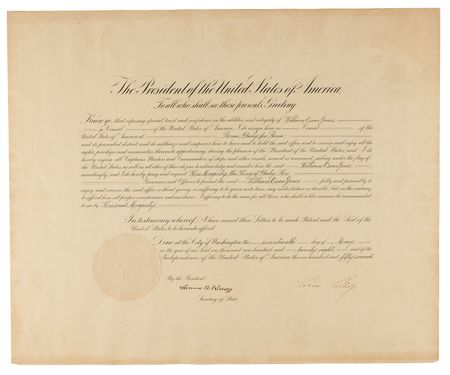 The President of the United States of America,
To all who shall see these presents, Greeting:
Know ye, that reposing special trust and confidence in the abilities and integrity of William Oscar Jones,
as Consul of the United States of America, I do assign him as Consul of the
United States of America at Rome, Italy
and its consular district, and do authorize and empower him to have and to hold the said office and to exercise and enjoy all the
rights, privileges and immunities thereunto appertaining, during the pleasure of the President of the United States, and I do
hereby enjoin all Captains, Masters and Commanders of ships and other vessels, armed or unarmed, sailing under the flag of
the United States, as well as all other of their citizens, to acknowledge and consider him the said William Oscar Jones
accordingly, and I do hereby pray and request His Majesty, the King of Italy, His
Governors and Officers to permit the said William Oscar Jones fully and peaceably to
enjoy and exercise the said office without giving, or suffering to be given unto him, any molestation or trouble, but on the contrary,
to afford him all proper countenance and assistance. I offering to do the same for all those who shall, in like manner, be recommended
to me by His said Majesty.
In testimony whereof, I have caused these Letters to be made Patent and the Seal of the
United States to be hereunto affixed.
Done at the City of Washington this seventeenth day of May
in the year of our Lord one thousand nine hundred and twenty-eight, and of the
Independence of the United States of America the one hundred and fifty-second.
By the President:
Secretary of State.